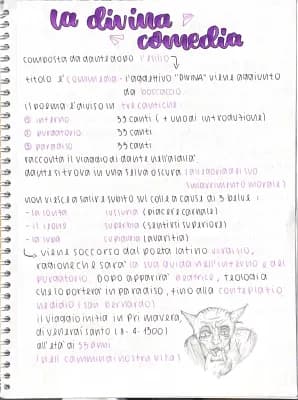 la divina
comedia
composta da dante dopo l'esilio
titolo è commedia - l'aggettivo "DIVINA" viene aggiunto
da boccaccio
il poema è diviso in tre cantiche
① inferno 33 canti ( + uno di introduzione)
② purgatorio 33 canti
③ paradiso 33 canti
racconta il viaggio di dante nell'aldilà
dante si trova in una selva oscura (allegoria del suo
smarrimento morale)
non riesce a salire subito sul colle a causa di 3 belve :
- la lonza lussuria (piacere carnale)
- il leone superbia (sentirsi superiore)
- la lupa cupidigia (avarizia)
viene soccorso dal poeta latino virgilio,
ragione che sarà la sua guida nell'inferno e del
purgatorio. Dopo apparirà beatrice, teologia
che lo porterà in paradiso, fino alla
(san bernardo)
il viaggio inizia in primavera,
di venerdì santo (8-4-1300)
all'età di 35 anni
(nell cammin di nostra vita)